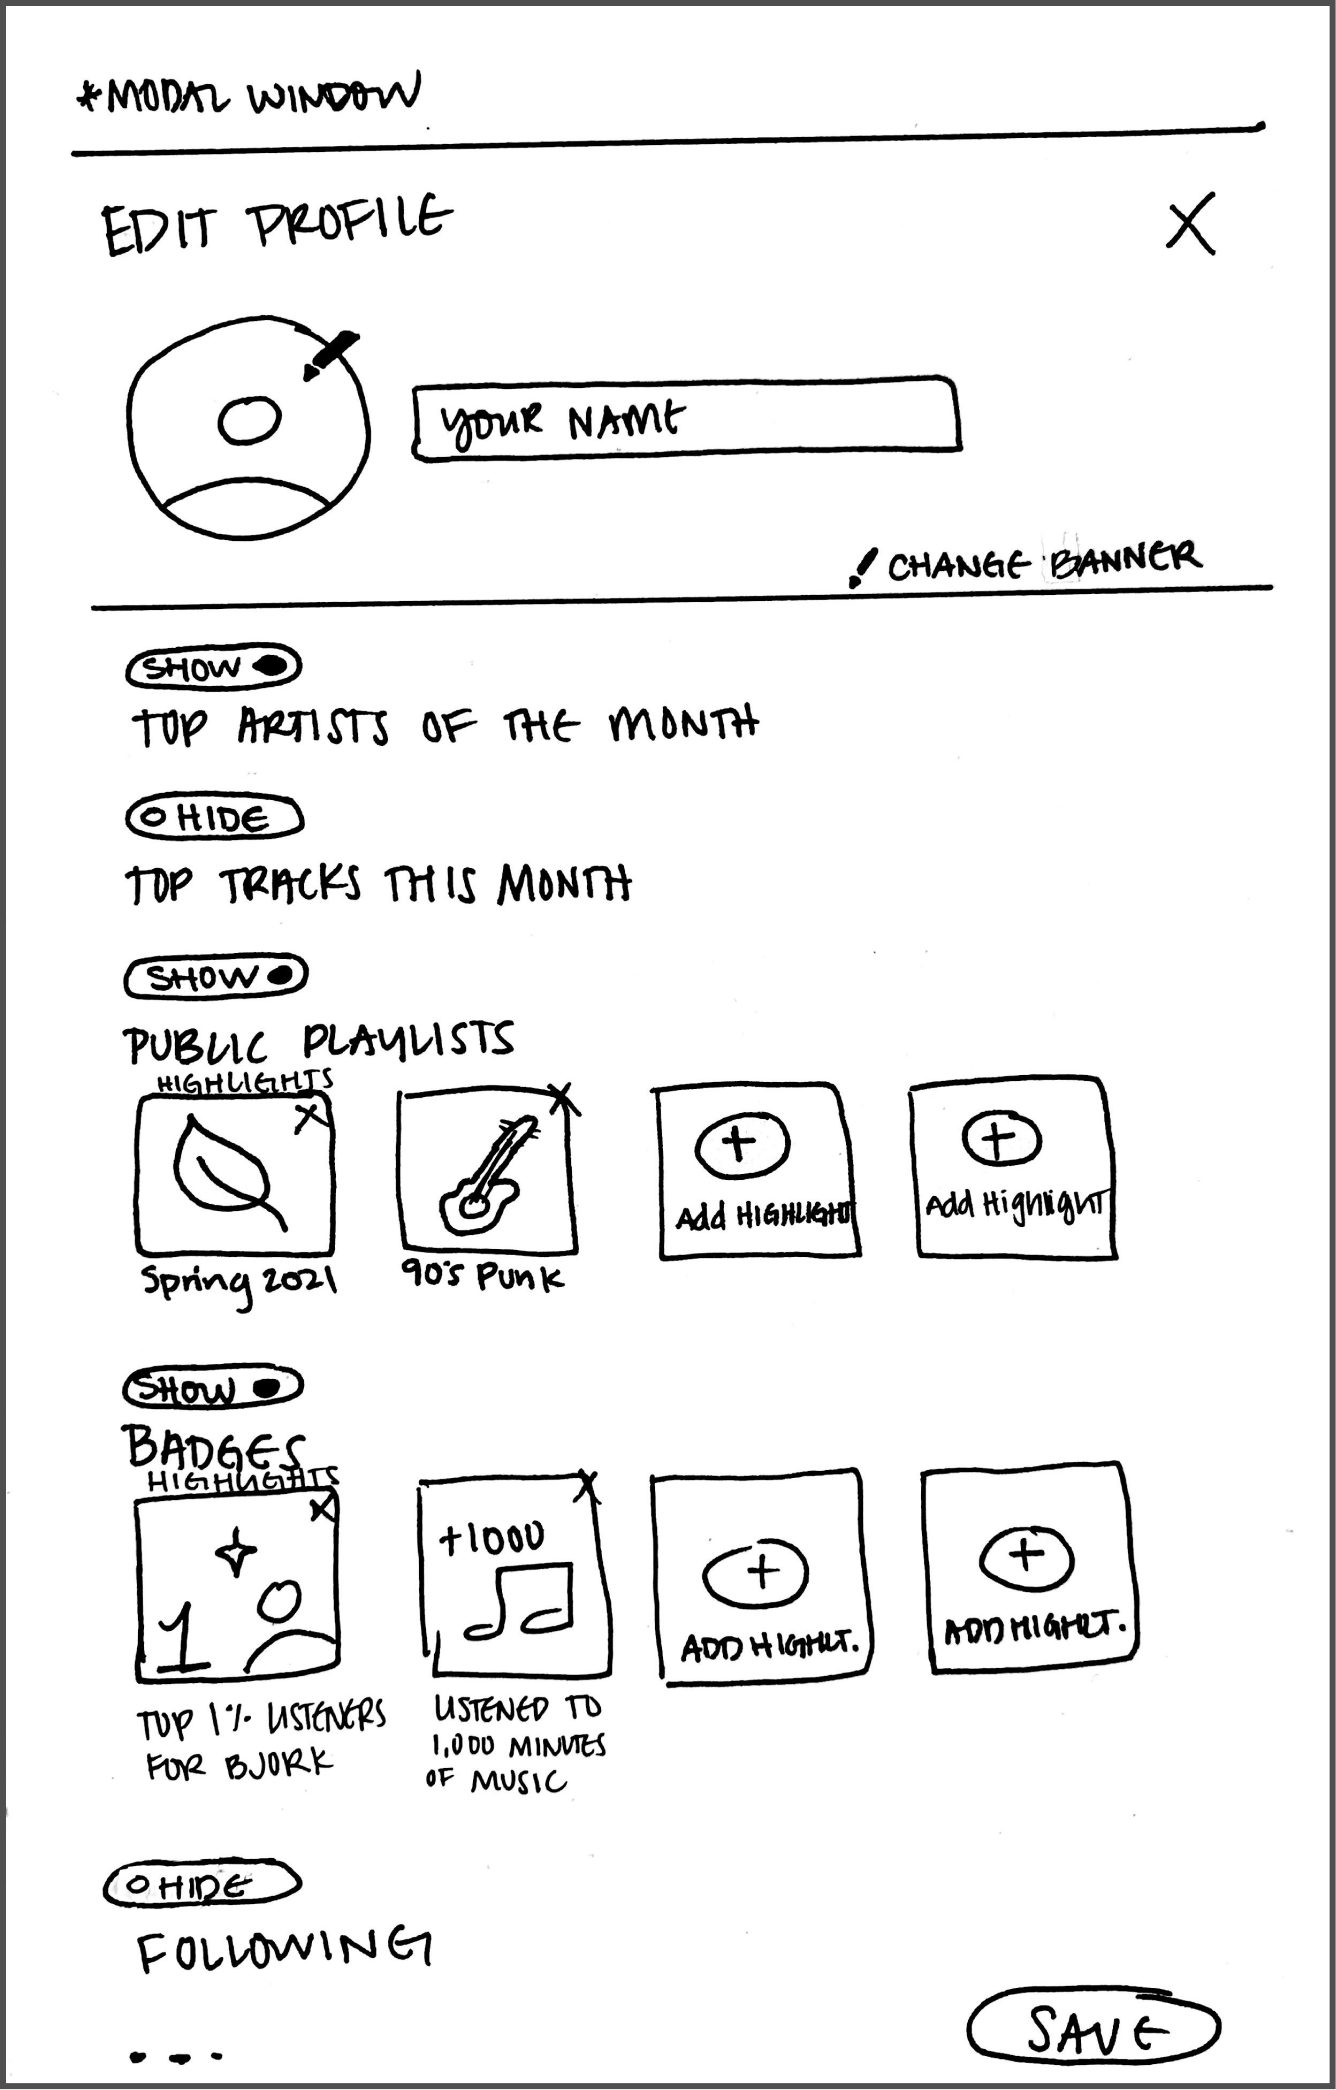 *MODAL WINDOW
EDIT PROFILE X
YOUR NAME
CHANGE BANNER
SHOW
TOP ARTISTS OF THE MONTH
HIDE
TOP TRACKS THIS MONTH
SHOW
PUBLIC PLAYLISTS
HIGHLIGHTS
X X + +
Add HIGHLIGHT Add Highlight
Spring 2021 90's Punk
SHOW
BADGES
HIGHLIGHTS
X X
+1000
+ +
1 ADD HIGHLT. ADD HIGHLT.
TOP 1% LISTENERS
FOR BJORK
LISTENED TO
1,000 MINUTES
OF MUSIC
HIDE
FOLLOWING
SAVE
...